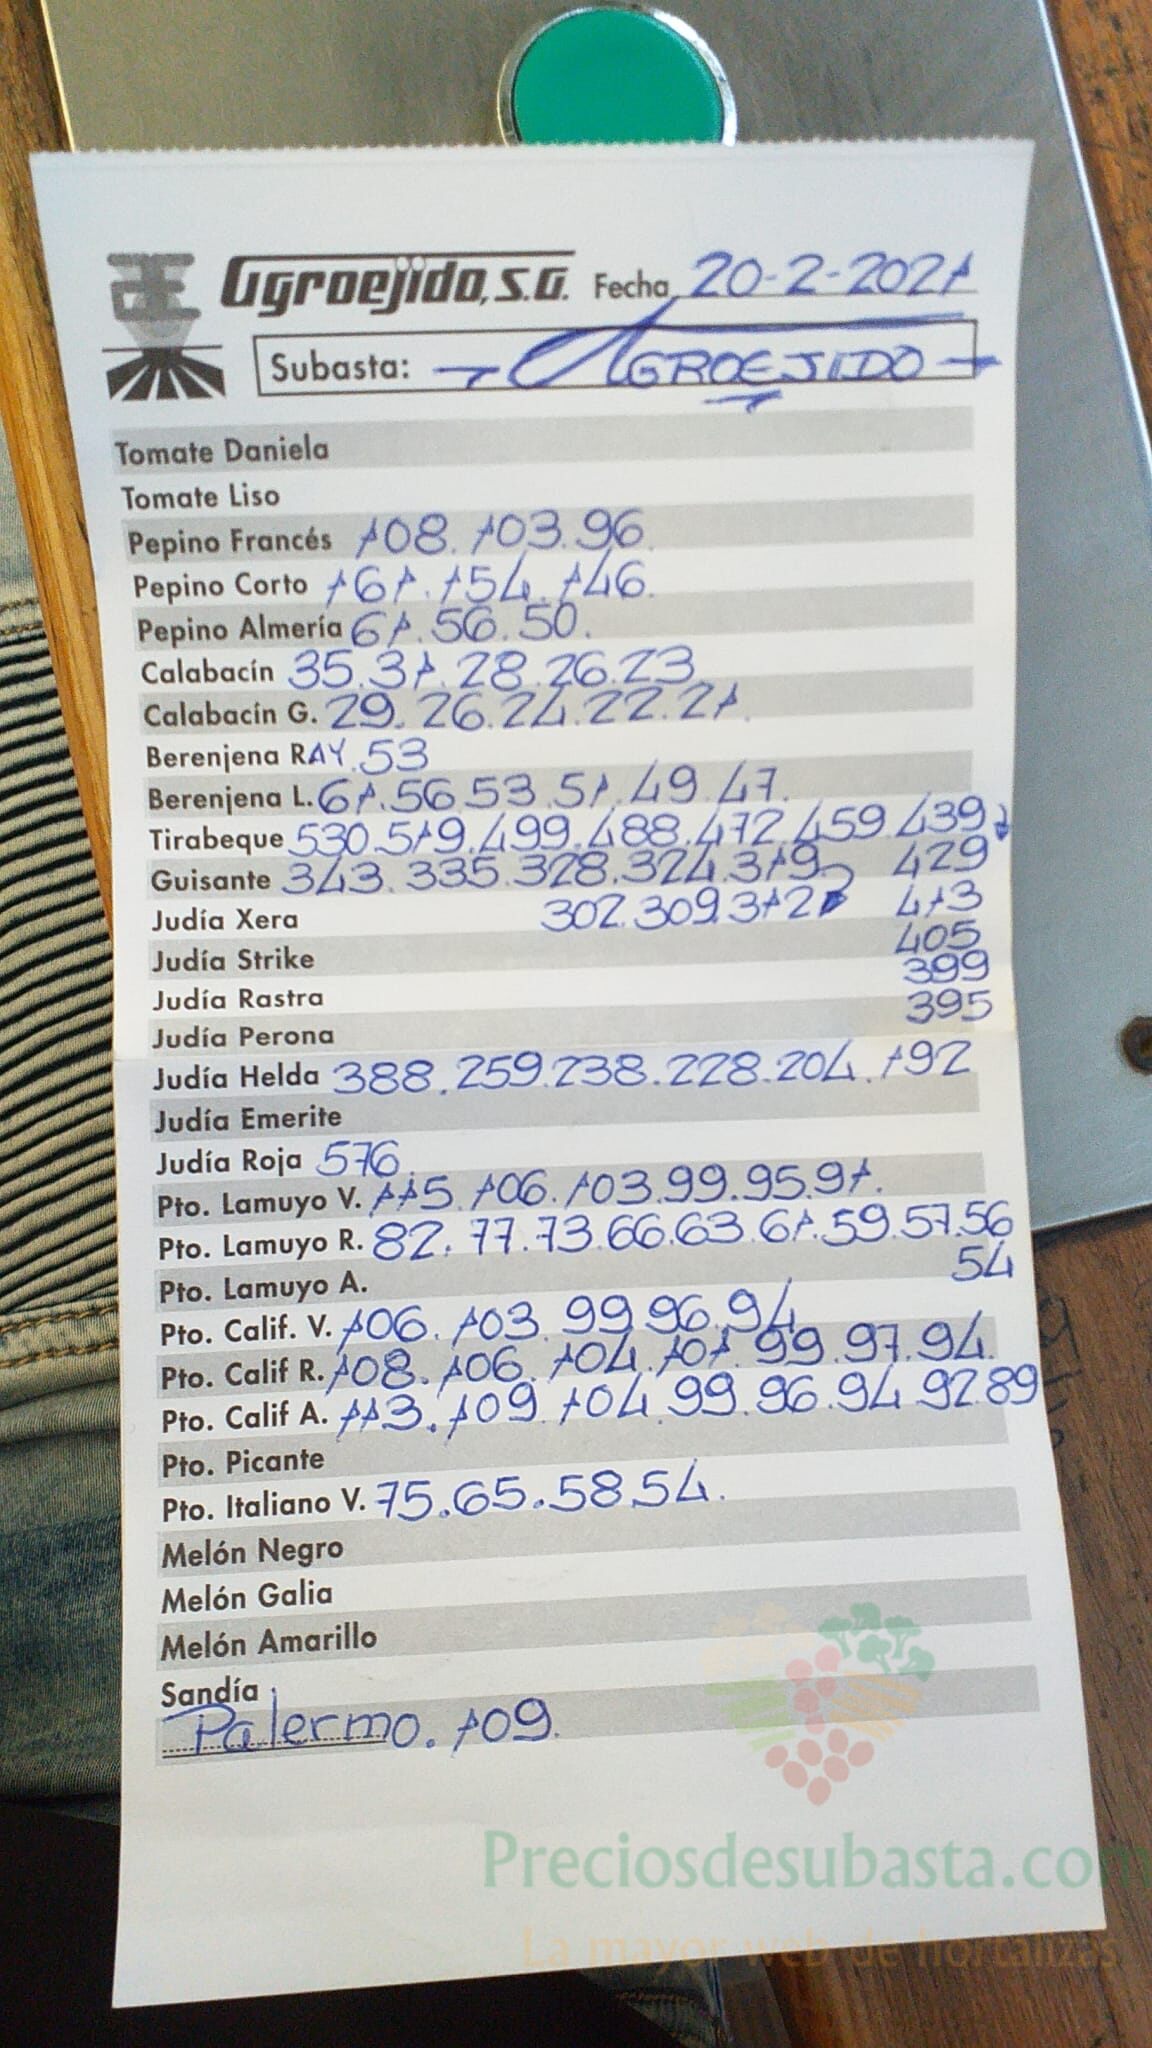 Agroejido, S.A. Fecha 20-2-2021
Subasta: AGROEJIDO
Tomate Daniela
Tomate Liso
Pepino Francés 108. 103. 96
Pepino Corto 161. 154. 146.
Pepino Almería 61. 56. 50.
Calabacín 35. 31. 28. 26. 23
Calabacín G. 29. 26. 24. 22. 21.
Berenjena RAY. 53
Berenjena L. 61. 56. 53. 51. 49. 47.
Tirabeque 530. 519. 499. 488. 472. 459. 439
Guisante 343. 335. 328. 324. 319 429
Judía Xera 302. 309. 312 413
Judía Strike 405
399
Judía Rastra 395
Judía Perona
Judía Helda 388. 259. 238. 228. 204. 192
Judía Emerite
Judía Roja 576.
Pto. Lamuyo V. 115. 106. 103. 99. 95. 91.
Pto. Lamuyo R. 82. 77. 73. 66. 63. 61. 59. 57. 56
Pto. Lamuyo A. 54
Pto. Calif. V. 106. 103. 99. 96. 94
Pto. Calif R. 108. 106. 104. 101. 99. 97. 94.
Pto. Calif A. 113. 109. 104. 99. 96. 94. 92. 89
Pto. Picante
Pto. Italiano V. 75. 65. 58. 54.
Melón Negro
Melón Galia
Melón Amarillo
Sandía
Palermo. 109.
Preciosdesubasta.com
La mayor web de hortalizas